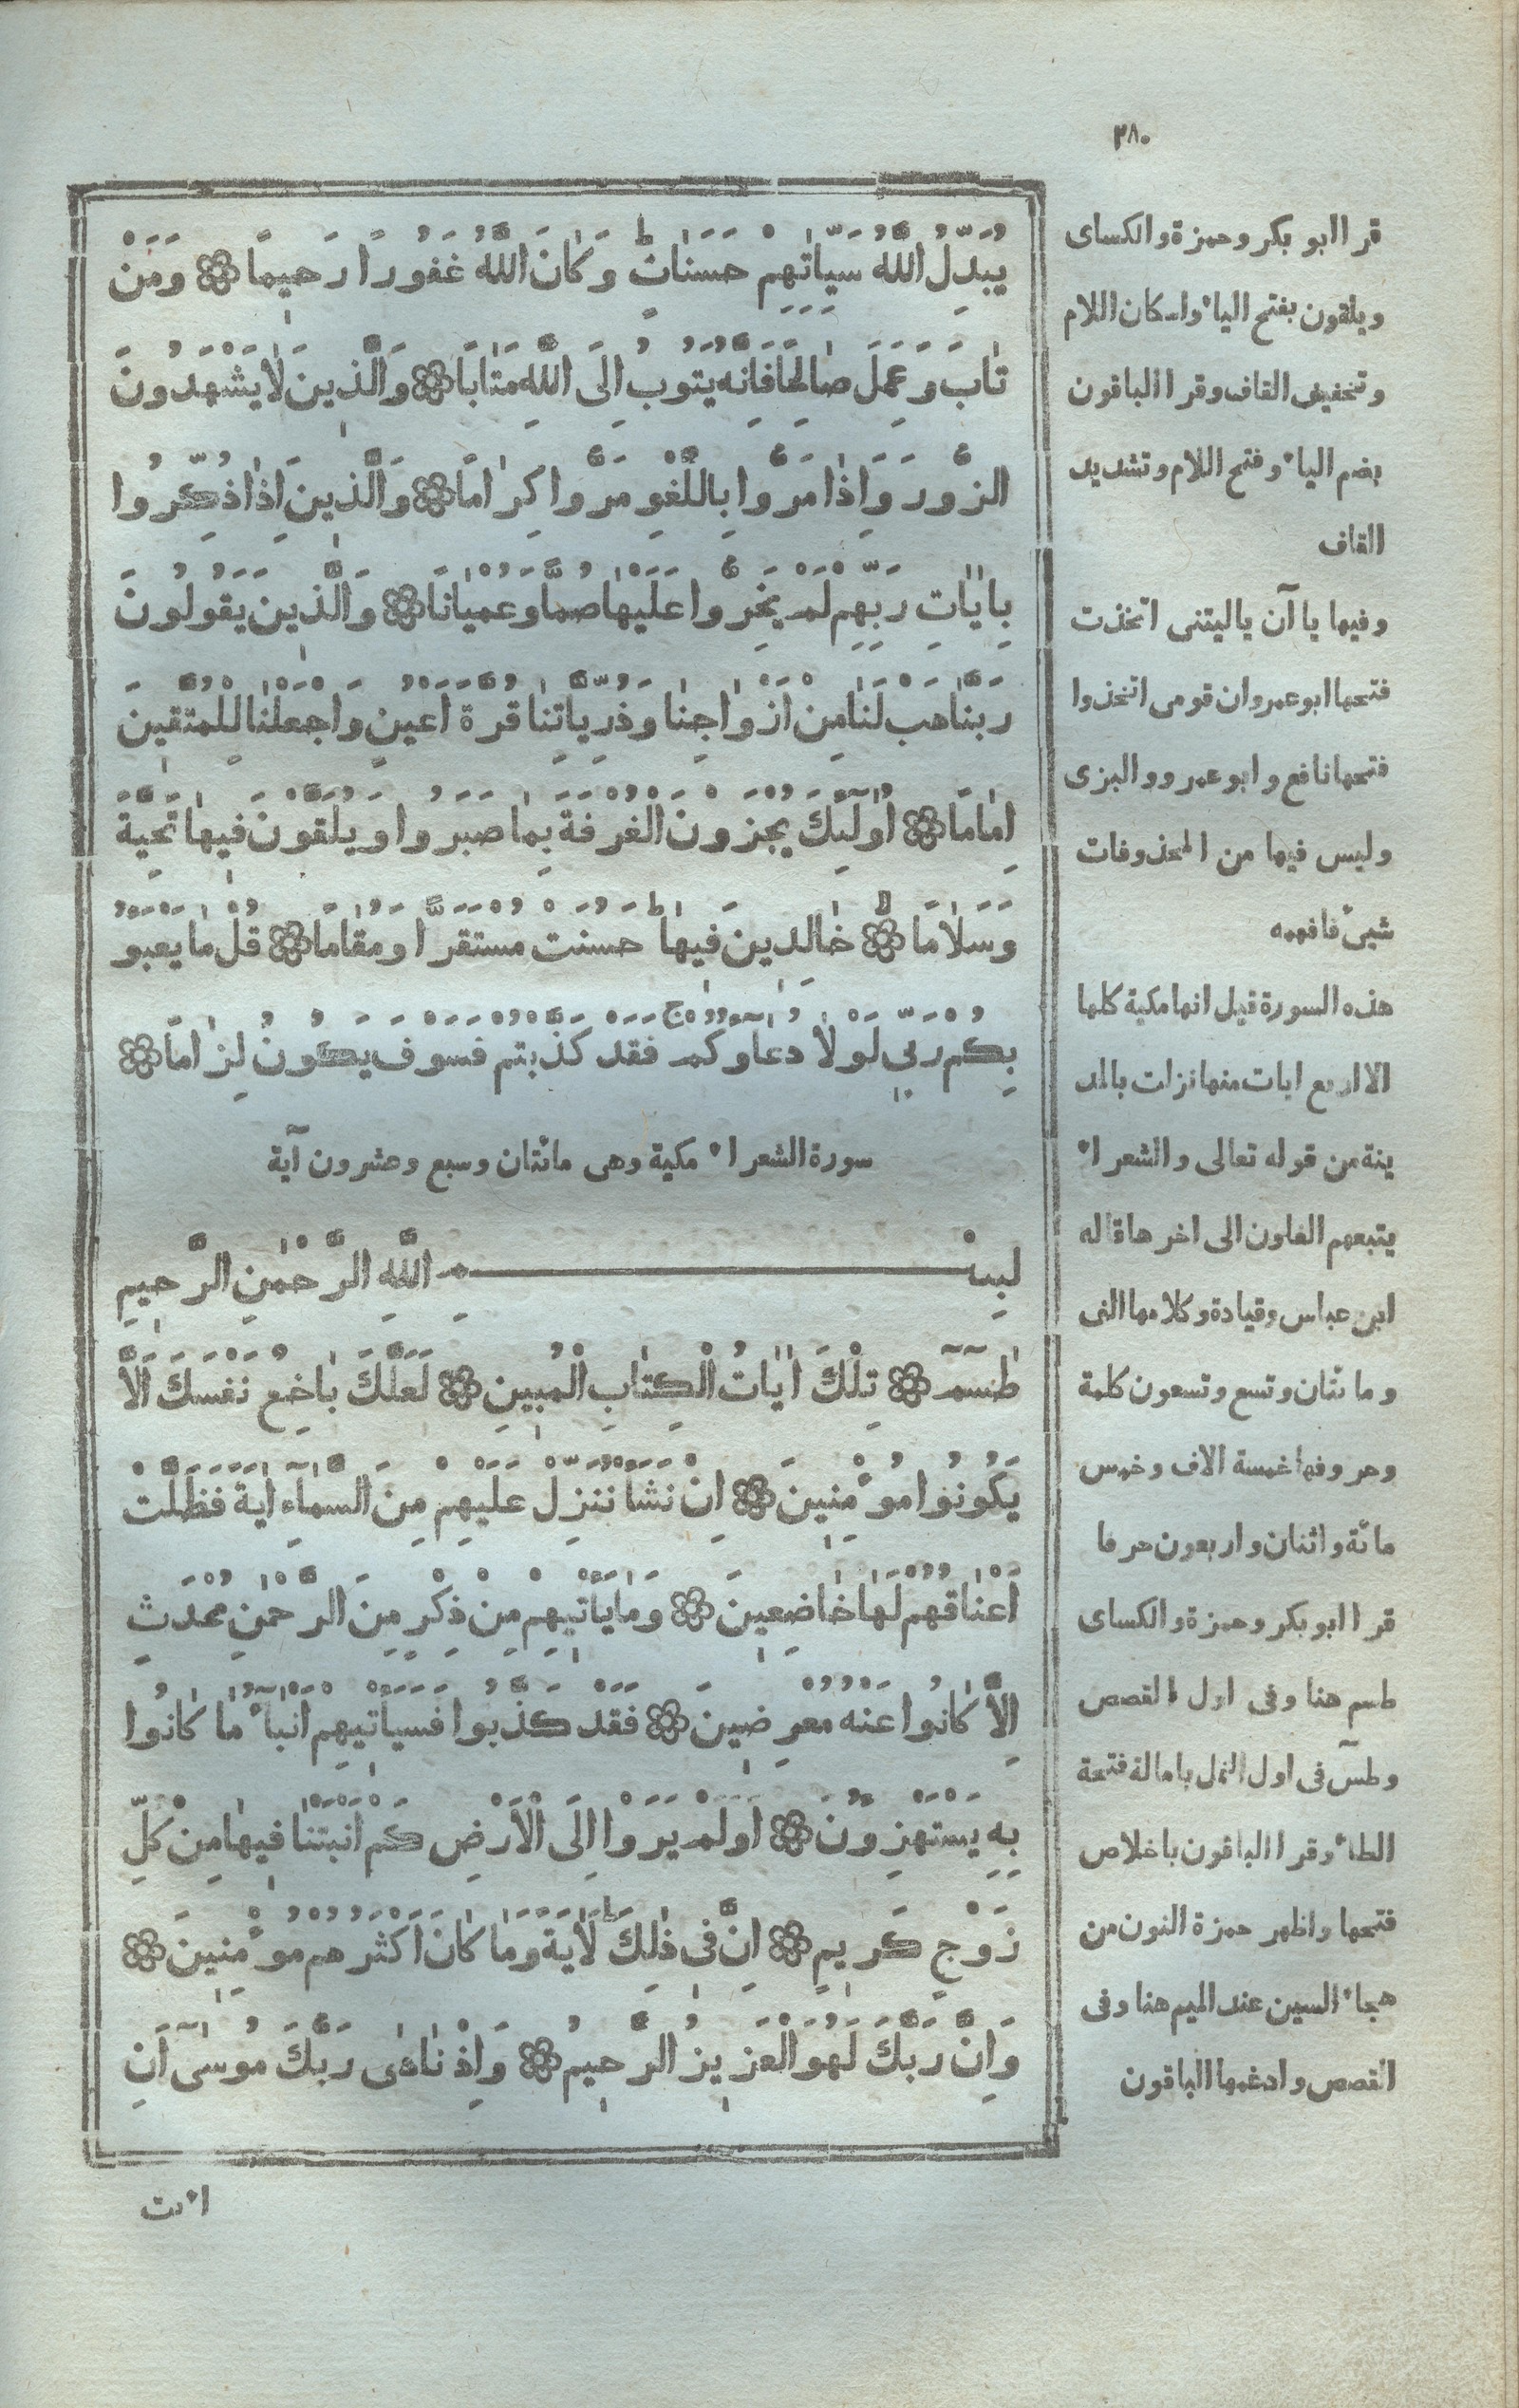 ٣٨٠
يُبَدِّلُ اللَّهُ سَيِّاٰتِهِمْ حَسَنَاتٍ ط وَكَانَ اللَّهُ غَفُورًا رَحِيمًا ۞ وَمَنْ
تَابَ وَعَمِلَ صَالِحًا فَاِنَّهُ يَتُوبُ اِلَى اللَّهِ مَتَابًا ۞ وَالَّذِينَ لَا يَشْهَدُونَ
الزُّورَ وَاِذَا مَرُّوا بِاللَّغْوِ مَرُّوا كِرَامًا ۞ وَالَّذِينَ اِذَا ذُكِّرُوا
بِاٰيَاتِ رَبِّهِمْ لَمْ يَخِرُّوا عَلَيْهَا صُمًّا وَعُمْيَانًا ۞ وَالَّذِينَ يَقُولُونَ
رَبَّنَا هَبْ لَنَا مِنْ اَزْوَاجِنَا وَذُرِّيَّاتِنَا قُرَّةَ اَعْيُنٍ وَاجْعَلْنَا لِلْمُتَّقِينَ
اِمَامًا ۞ اُولٰٓئِكَ يُجْزَوْنَ الْغُرْفَةَ بِمَا صَبَرُوا وَيُلَقَّوْنَ فِيهَا تَحِيَّةً
وَسَلَامًا ۞ خَالِدِينَ فِيهَا ط حَسُنَتْ مُسْتَقَرًّا وَمُقَامًا ۞ قُلْ مَا يَعْبَؤُ
بِكُمْ رَبِّي لَوْلَا دُعَاؤُكُمْ ج فَقَدْ كَذَّبْتُمْ فَسَوْفَ يَكُونُ لِزَامًا ۞
سورة الشعراء مكية وهى مائتان وسبع وعشرون آية
بِسْمِ اللَّهِ الرَّحْمٰنِ الرَّحِيمِ
طٰسٓمٓ ۞ تِلْكَ اٰيَاتُ الْكِتَابِ الْمُبِينِ ۞ لَعَلَّكَ بَاخِعٌ نَفْسَكَ اَلَّا
يَكُونُوا مُؤْمِنِينَ ۞ اِنْ نَشَأْ نُنَزِّلْ عَلَيْهِمْ مِنَ السَّمَآءِ اٰيَةً فَظَلَّتْ
اَعْنَاقُهُمْ لَهَا خَاضِعِينَ ۞ وَمَا يَأْتِيهِمْ مِنْ ذِكْرٍ مِنَ الرَّحْمٰنِ مُحْدَثٍ
اِلَّا كَانُوا عَنْهُ مُعْرِضِينَ ۞ فَقَدْ كَذَّبُوا فَسَيَأْتِيهِمْ اَنْبَآءُ مَا كَانُوا
بِهِ يَسْتَهْزِؤُنَ ۞ اَوَلَمْ يَرَوْا اِلَى الْاَرْضِ كَمْ اَنْبَتْنَا فِيهَا مِنْ كُلِّ
زَوْجٍ كَرِيمٍ ۞ اِنَّ فِى ذٰلِكَ لَاٰيَةً ط وَمَا كَانَ اَكْثَرُهُمْ مُؤْمِنِينَ ۞
وَاِنَّ رَبَّكَ لَهُوَ الْعَزِيزُ الرَّحِيمُ ۞ وَاِذْ نَادٰى رَبُّكَ مُوسٰٓى اَنِ
ائت
قرا ابو بكر وحمزة والكساى
ويلقون بفتح الياء واسكان اللام
وتخفيف القاف وقرا الباقون
بضم الياء وفتح اللام وتشديد
القاف
وفيها ياآن ياليتنى اتخذت
فتحها ابو عمرو ان قومى اتخذوا
فتحها نافع وابو عمرو والبزى
وليس فيها من المحذوفات
شيئ فافهمه
هذه السورة قيل انها مكية كلها
الا اربع ايات منها نزلت بالمد
ينة من قوله تعالى والشعراء
يتبعهم الغاون الى اخرها قاله
ابن عباس وقيادة وكلامها الفى
ومائتان وتسع وتسعون كلمة
وحروفها خمسة الاف وخمس
مائة واثنان واربعون حرفا
قرا ابو بكر وحمزة والكساى
طسم هنا وفى اول القصص
وطسٓ فى اول النمل بامالة فتحة
الطاء وقرا الباقون باخلاص
فتحها واظهر حمزة النون من
هجاء السين عند الميم هنا وفى
القصص وادغمها الباقون